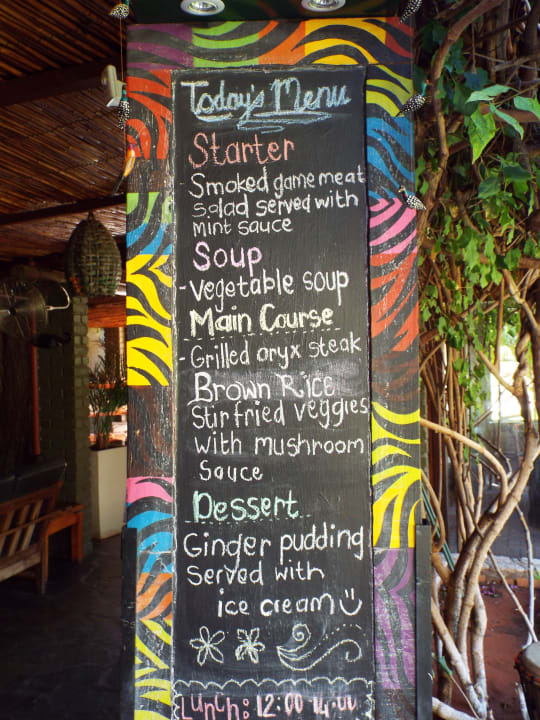 Today's Menu
Starter
- Smoked game meat
salad served with
mint sauce
Soup
- Vegetable soup
Main Course
- Grilled oryx steak
Brown Rice
Stirfried veggies
with mushroom
Sauce
Dessert
Ginger pudding
Served with
ice cream
Lunch: 12:00 14:00